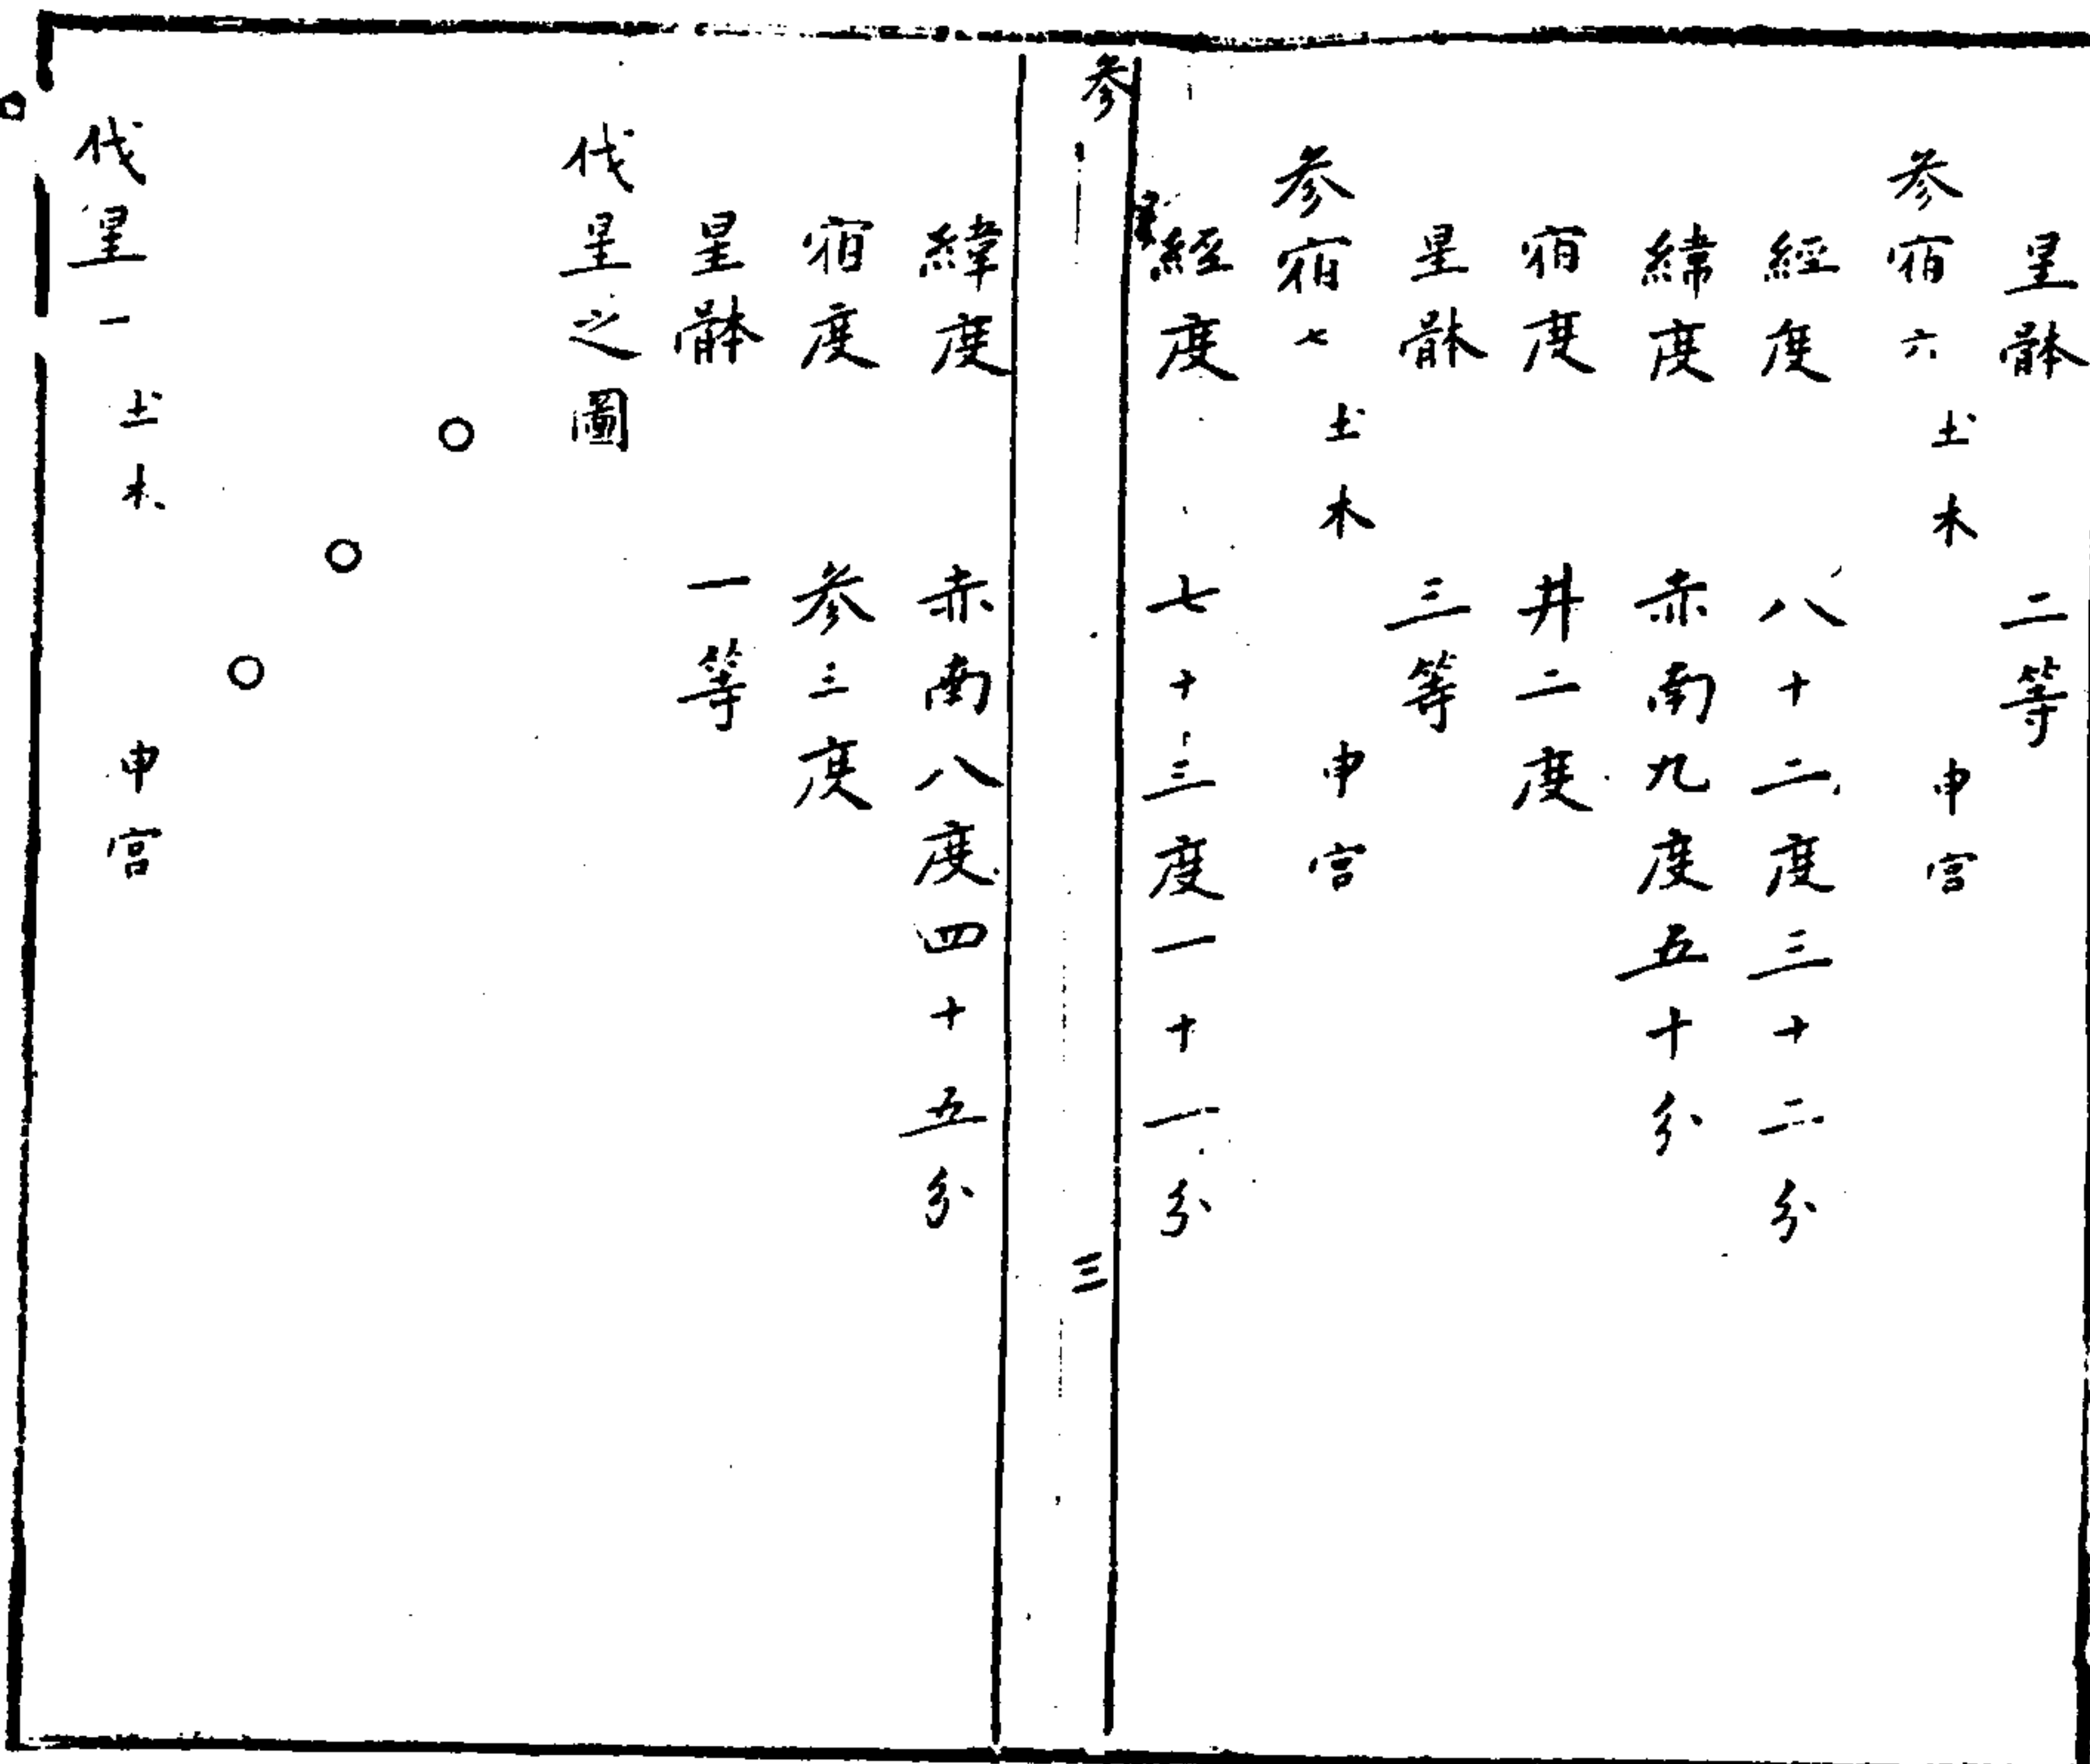 星 骵 二等
参宿六 土木 申宫
經度 八十二度三十二分
緯度 赤南九度五十分
宿度 井二度
星骵 三等
参宿七 土木 申宫
經度 七十三度一十一分
参 三
緯度 赤南八度四十五分
宿度 参三度
星骵 一等
伐星之圖
伐星一 土木 申宫